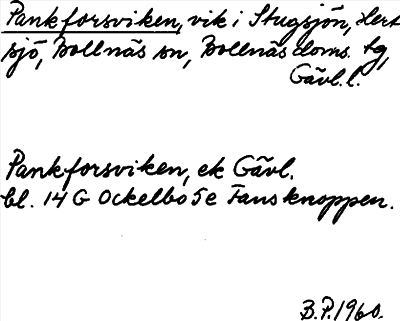 Pankforsviken, vik i Stugsjön, Hert
sjö, Bollnäs sn, Bollnäs doms. tg,
Gävl. l.
Pankforsviken, ek Gävl.
bl. 14 G Ockelbo 5e Fansknoppen.
B.P. 1960.